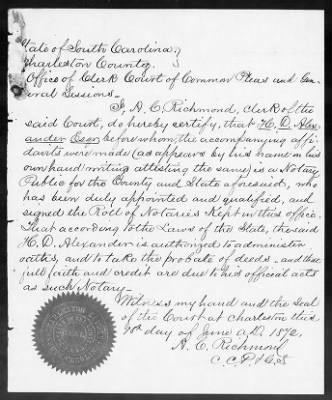 State of South Carolina,
Charleston County.
Office of Clerk Court of Common Pleas and Gen
eral Sessions—
I, A. C. Richmond, Clerk of the
said Court, do hereby certify, that H. D. Alex
ander Esqr. before whom the accompanying affi
davits were made (as appears by his name in his
own hand writing attesting the same) is a Notary
Public for the County and State aforesaid, who
has been duly appointed and qualified, and
signed the Roll of Notaries kept in this office.
That according to the Laws of the State, the said
H. D. Alexander is authorized to administer
oaths, and to take the probate of deeds— and that
full faith and credit are due to his official acts
as such Notary—
Witness my hand and the Seal
of the Court at Charleston this
day of June A.D. 1872,
A. C. Richmond
C. C. P. & G. S